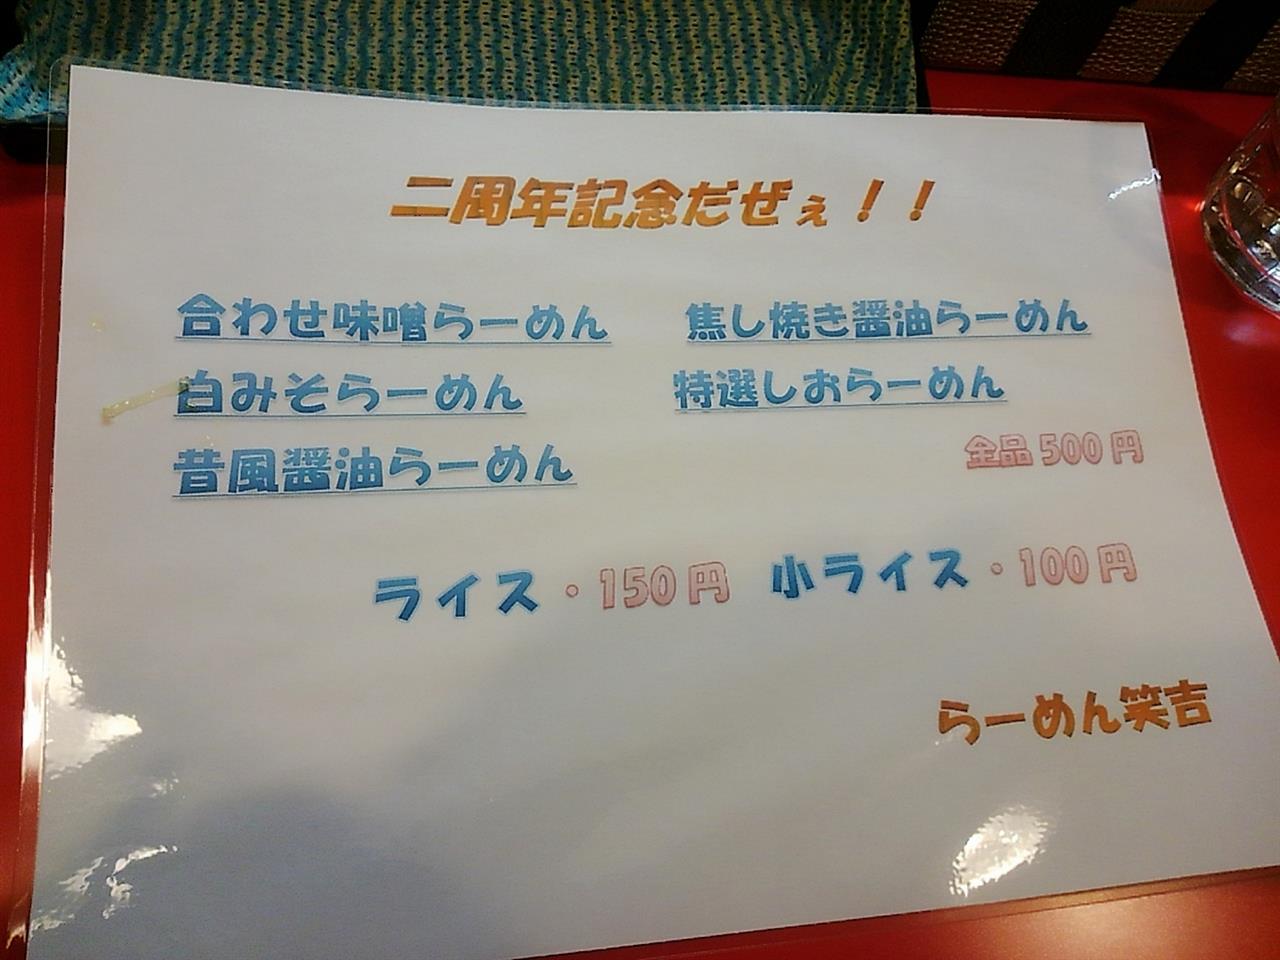 二周年記念だぜぇ！！
合わせ味噌らーめん 焦し焼き醤油らーめん
白みそらーめん 特選しおらーめん
昔風醤油らーめん
全品500円
ライス・150円 小ライス・100円
らーめん笑吉